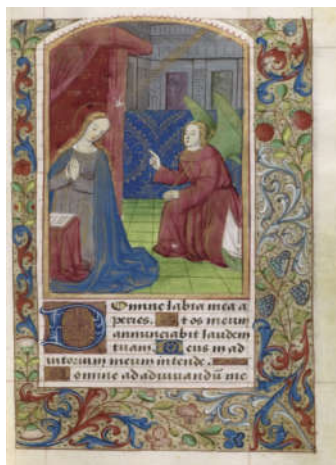 Domine labia mea a
peries. Et os meum
annunciabit laudem
tuam. Deus in ad
iutorium meum intende.
Domine ad adiuvandū me